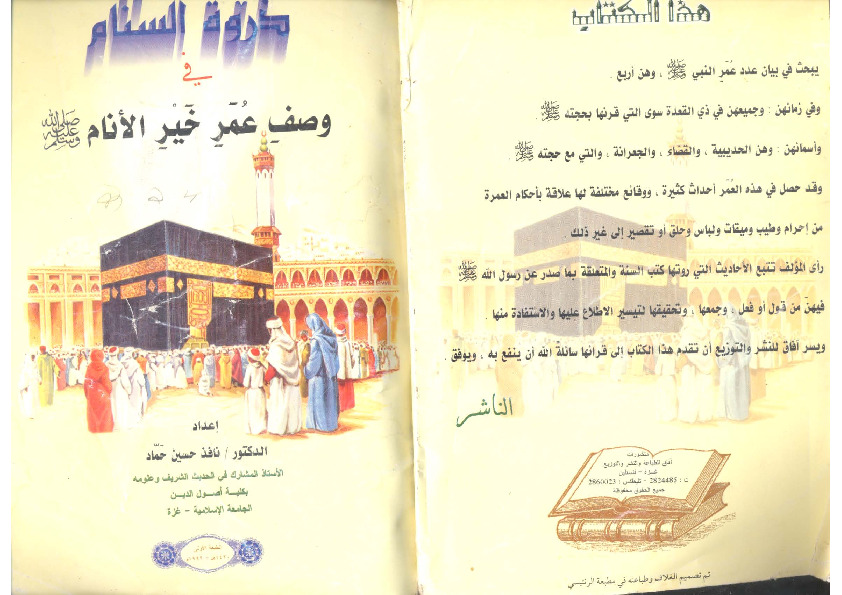 ذروة السنام
في
وصف عُمَرِ خَيْرِ الأنام ﷺ
إعداد
الدكتور / نافذ حسين حَمَّاد
الأستاذ المشارك في الحديث الشريف وعلومه
بكلية أصول الدين
الجامعة الإسلامية - غزة
الطبعة الأولى
هذا الكتاب
يبحث في بيان عدد عُمَرِ النبي ﷺ ، وهن أربع .
وفي زمانهن : وجميعهن في ذي القعدة سوى التي قرنها بحجته ﷺ .
وأسمائهن : وهن الحديبية ، والقضاء ، والجعرانة ، والتي مع حجته ﷺ .
وقد حصل في هذه العُمَر أحداث كثيرة ، ووقائع مختلفة لها علاقة بأحكام العمرة
من إحرام وطيب وميقات ولباس وحلق أو تقصير إلى غير ذلك .
رأى المؤلف تتبع الأحاديث التي روتها كتب السنة والمتعلقة بما صدر عن رسول الله ﷺ
فيهنّ من قول أو فعل ، وجمعها ، وتحقيقها لتيسير الاطلاع عليها والاستفادة منها .
ويسر آفاق للنشر والتوزيع أن تقدم هذا الكتاب إلى قرائها سائلةً الله أن ينفع به ، ويوفق .
الناشر
منشورات
آفاق للطباعة والنشر والتوزيع
غزة - فلسطين
ت : 2824485 - تليفاكس : 2860023
جميع الحقوق محفوظة
تم تصميم الغلاف وطباعته في مطبعة الرنتيسي